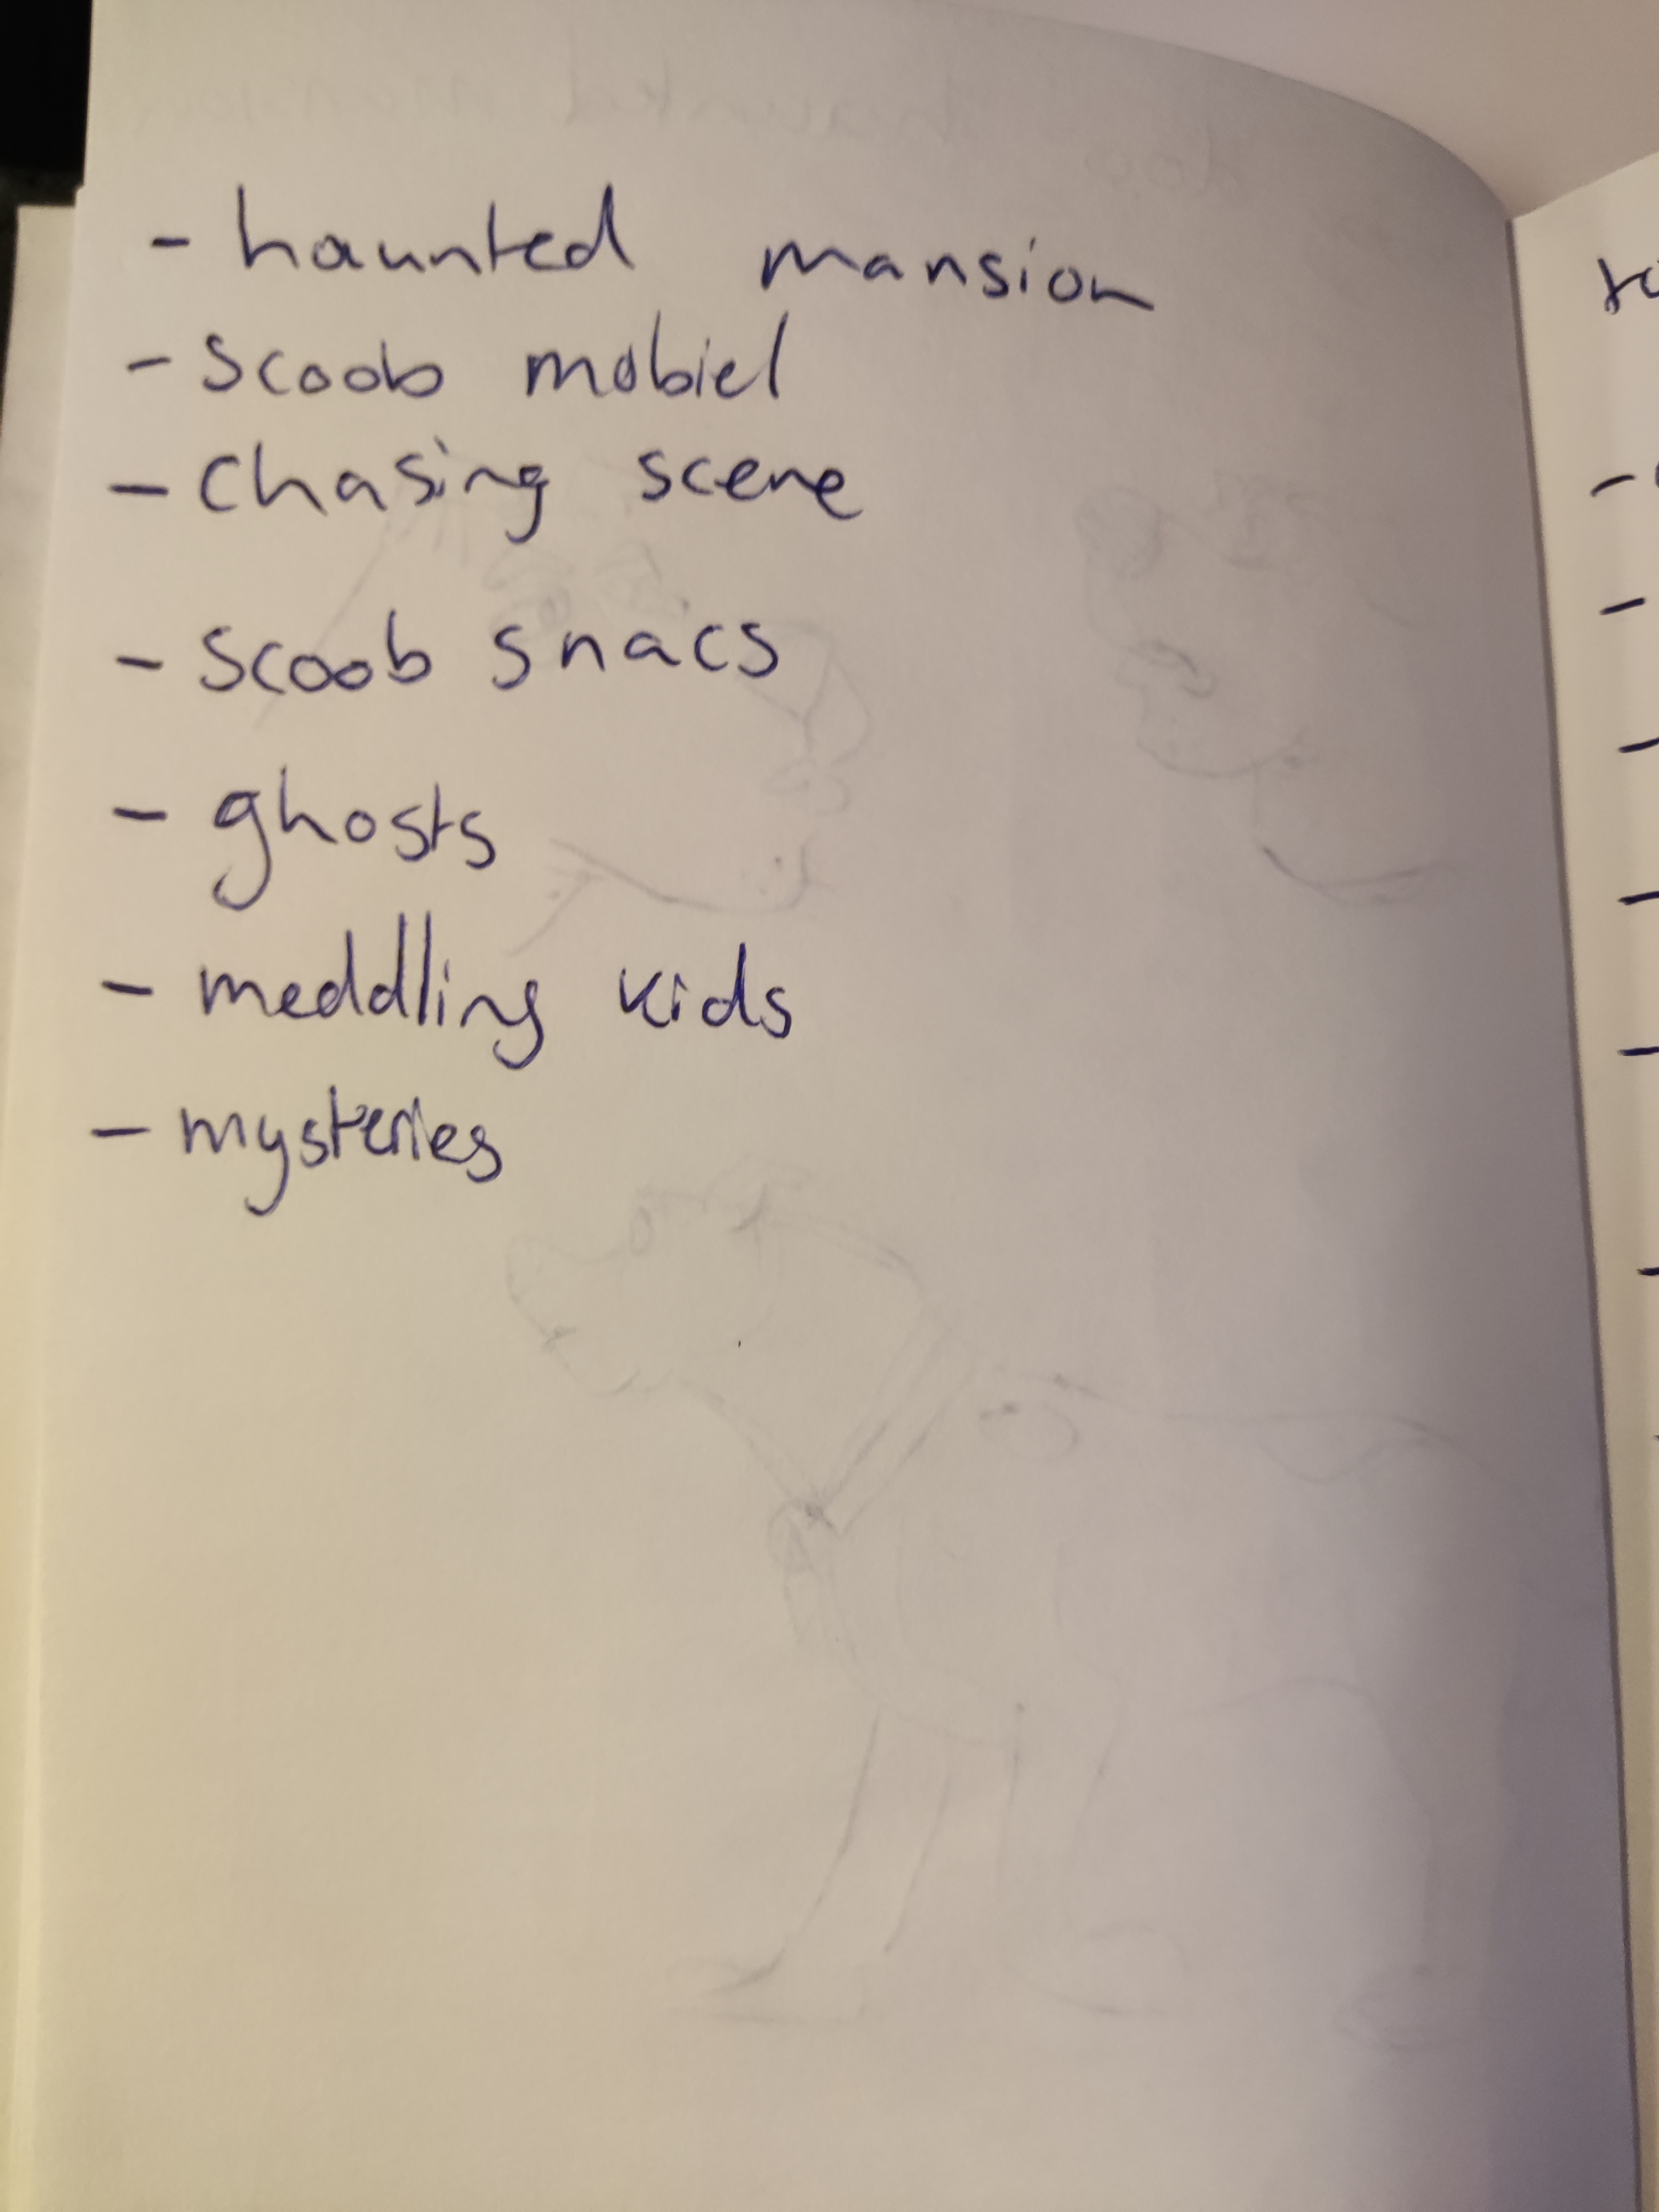 - haunted mansion
- scoob mobiel
- chasing scene
- scoob snacs
- ghosts
- meddling kids
- mysteries